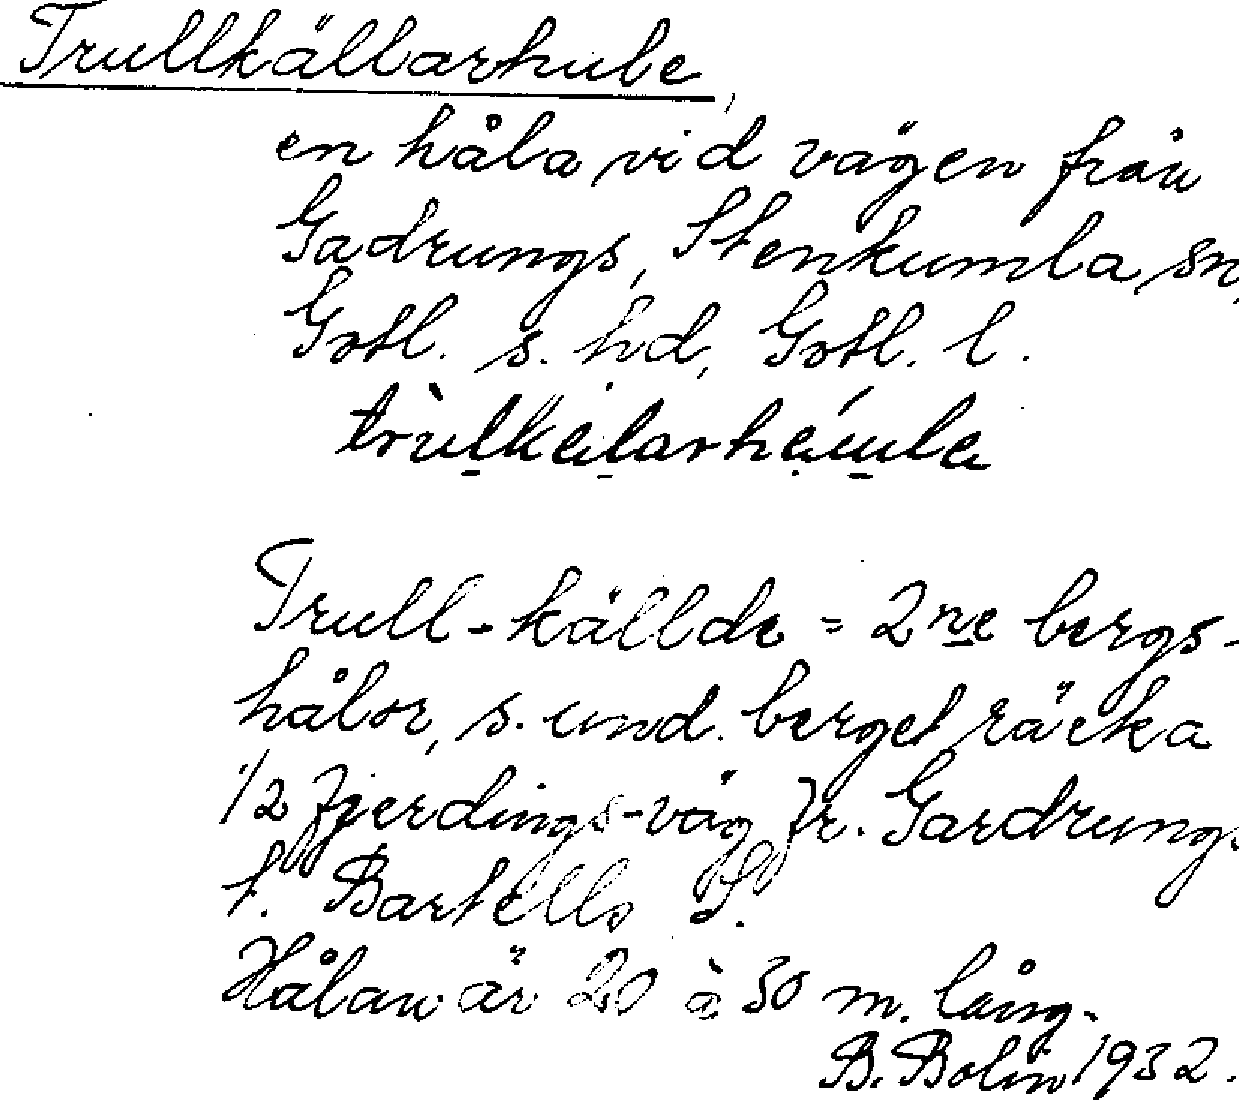 Trullkällarhule,
en håla vid vägen från
Gadrungs, Stenkumla sn,
Gotl. s. hd, Gotl. l.

Trull-källde = 2ne bergs-
hålor, s. und. berget räcka
1/2 fjerdings-väg fr. Gardrungs
t. Bartells S.
Hålan är 20 à 30 m. lång.
B. Bolin 1932.